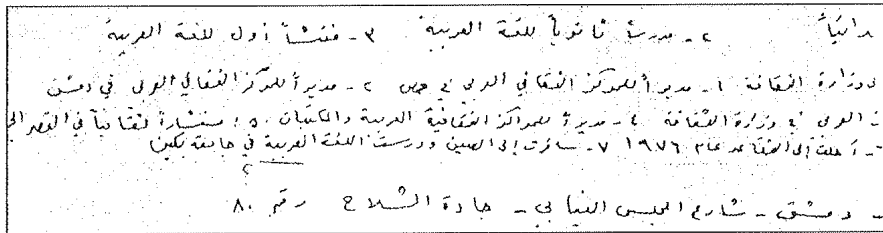 ـدائياً ٢ - مدرساً ثانوياً للغة العربية ٣ - مفتشاً أول للغة العربية
وزارة الثقافة ١ - مديراً للمركز الثقافي العربي في حمص ٢ - مديراً للمركز الثقافي العربي في دمشق
العربي في وزارة الثقافة ٤ - مديراً للمراكز الثقافية العربية والمكتبات ٥ - مستشاراً ثقافياً في القصر الجـ
٦ - أحلت إلى التقاعد عام ١٩٧٦ ٧ - سافرت إلى الصين ودرست اللغة العربية في جامعة بكين
دمشق - شارع المجلس النيابي - جادة الشلاح رقم ٨٠